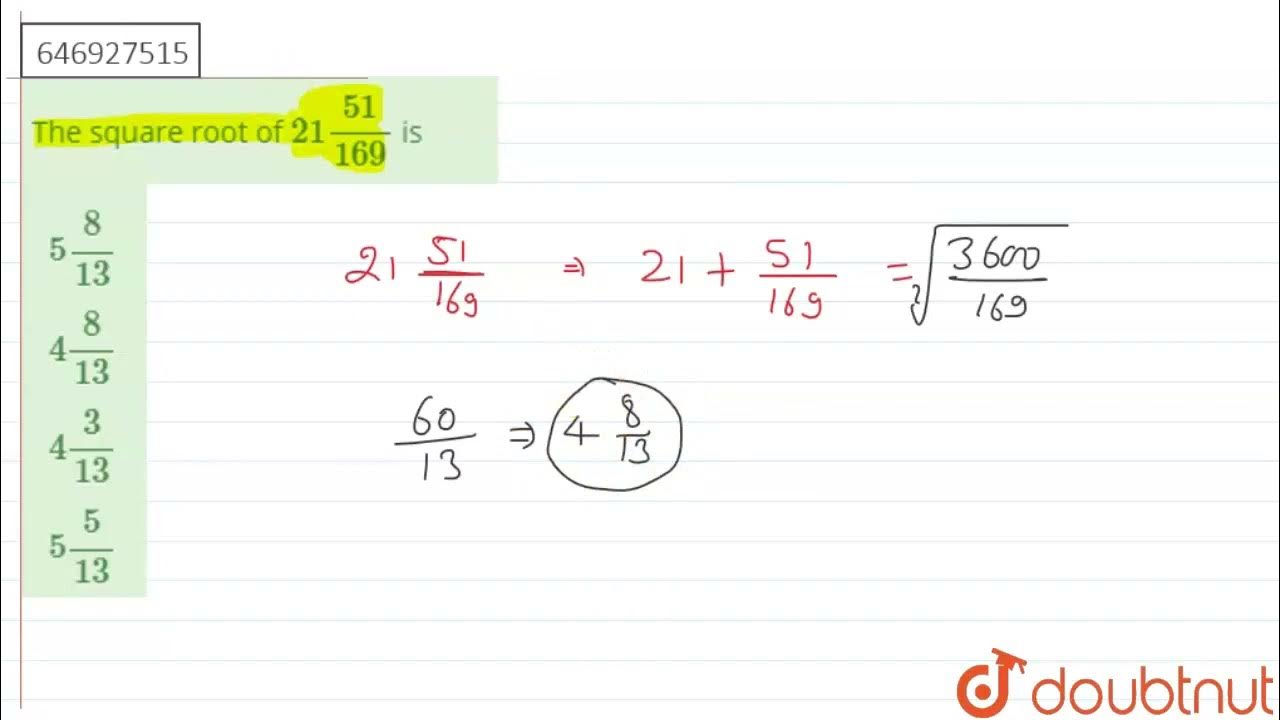 646927515
The square root of 21 51/169 is
5 8/13
4 8/13
4 3/13
5 5/13
21 51/169 ⇒ 21 + 51/169 = ²√3600/169
60/13 ⇒ 4 8/13
doubtnut